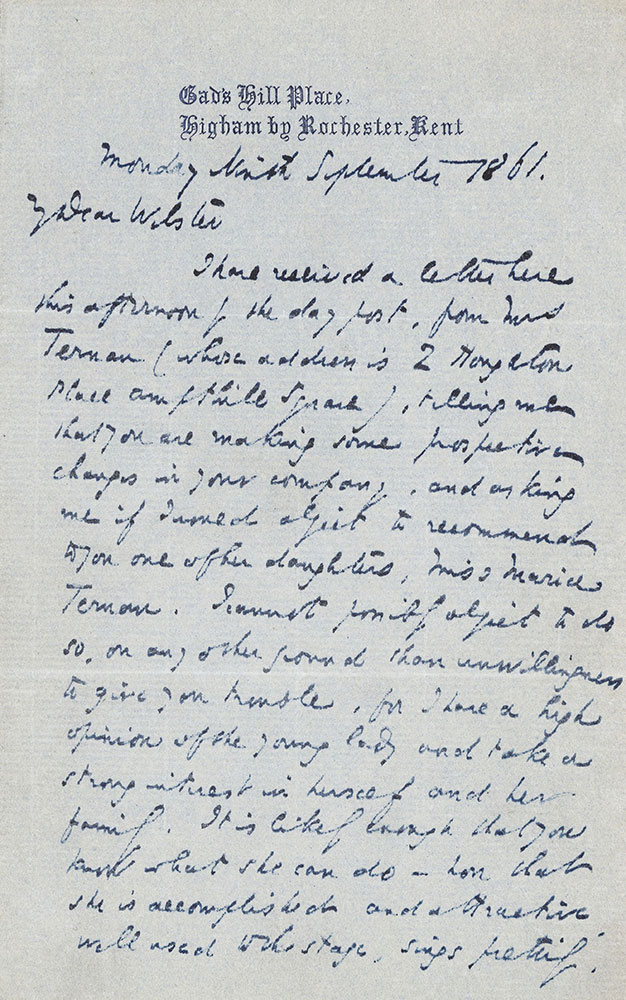 Gad's Hill Place,
Higham by Rochester, Kent
Monday Ninth September 1861.
My Dear Webster
I have received a letter here
this afternoon by the day post, from Mrs
Ternan (whose address is 2 Houghton
Place Ampthill Square), telling me
that you are making some prospective
changes in your company, and asking
me if I would object to recommend
to you one of her daughters, Miss Maria
Ternan. I cannot possibly object to do
so, on any other ground than unwillingness
to give you trouble, for I have a high
opinion of the young lady and take a
strong interest in herself and her
family. It is likely enough that you
know what she can do – how that
she is accomplished and attractive
well used to the stage, sings prettily,